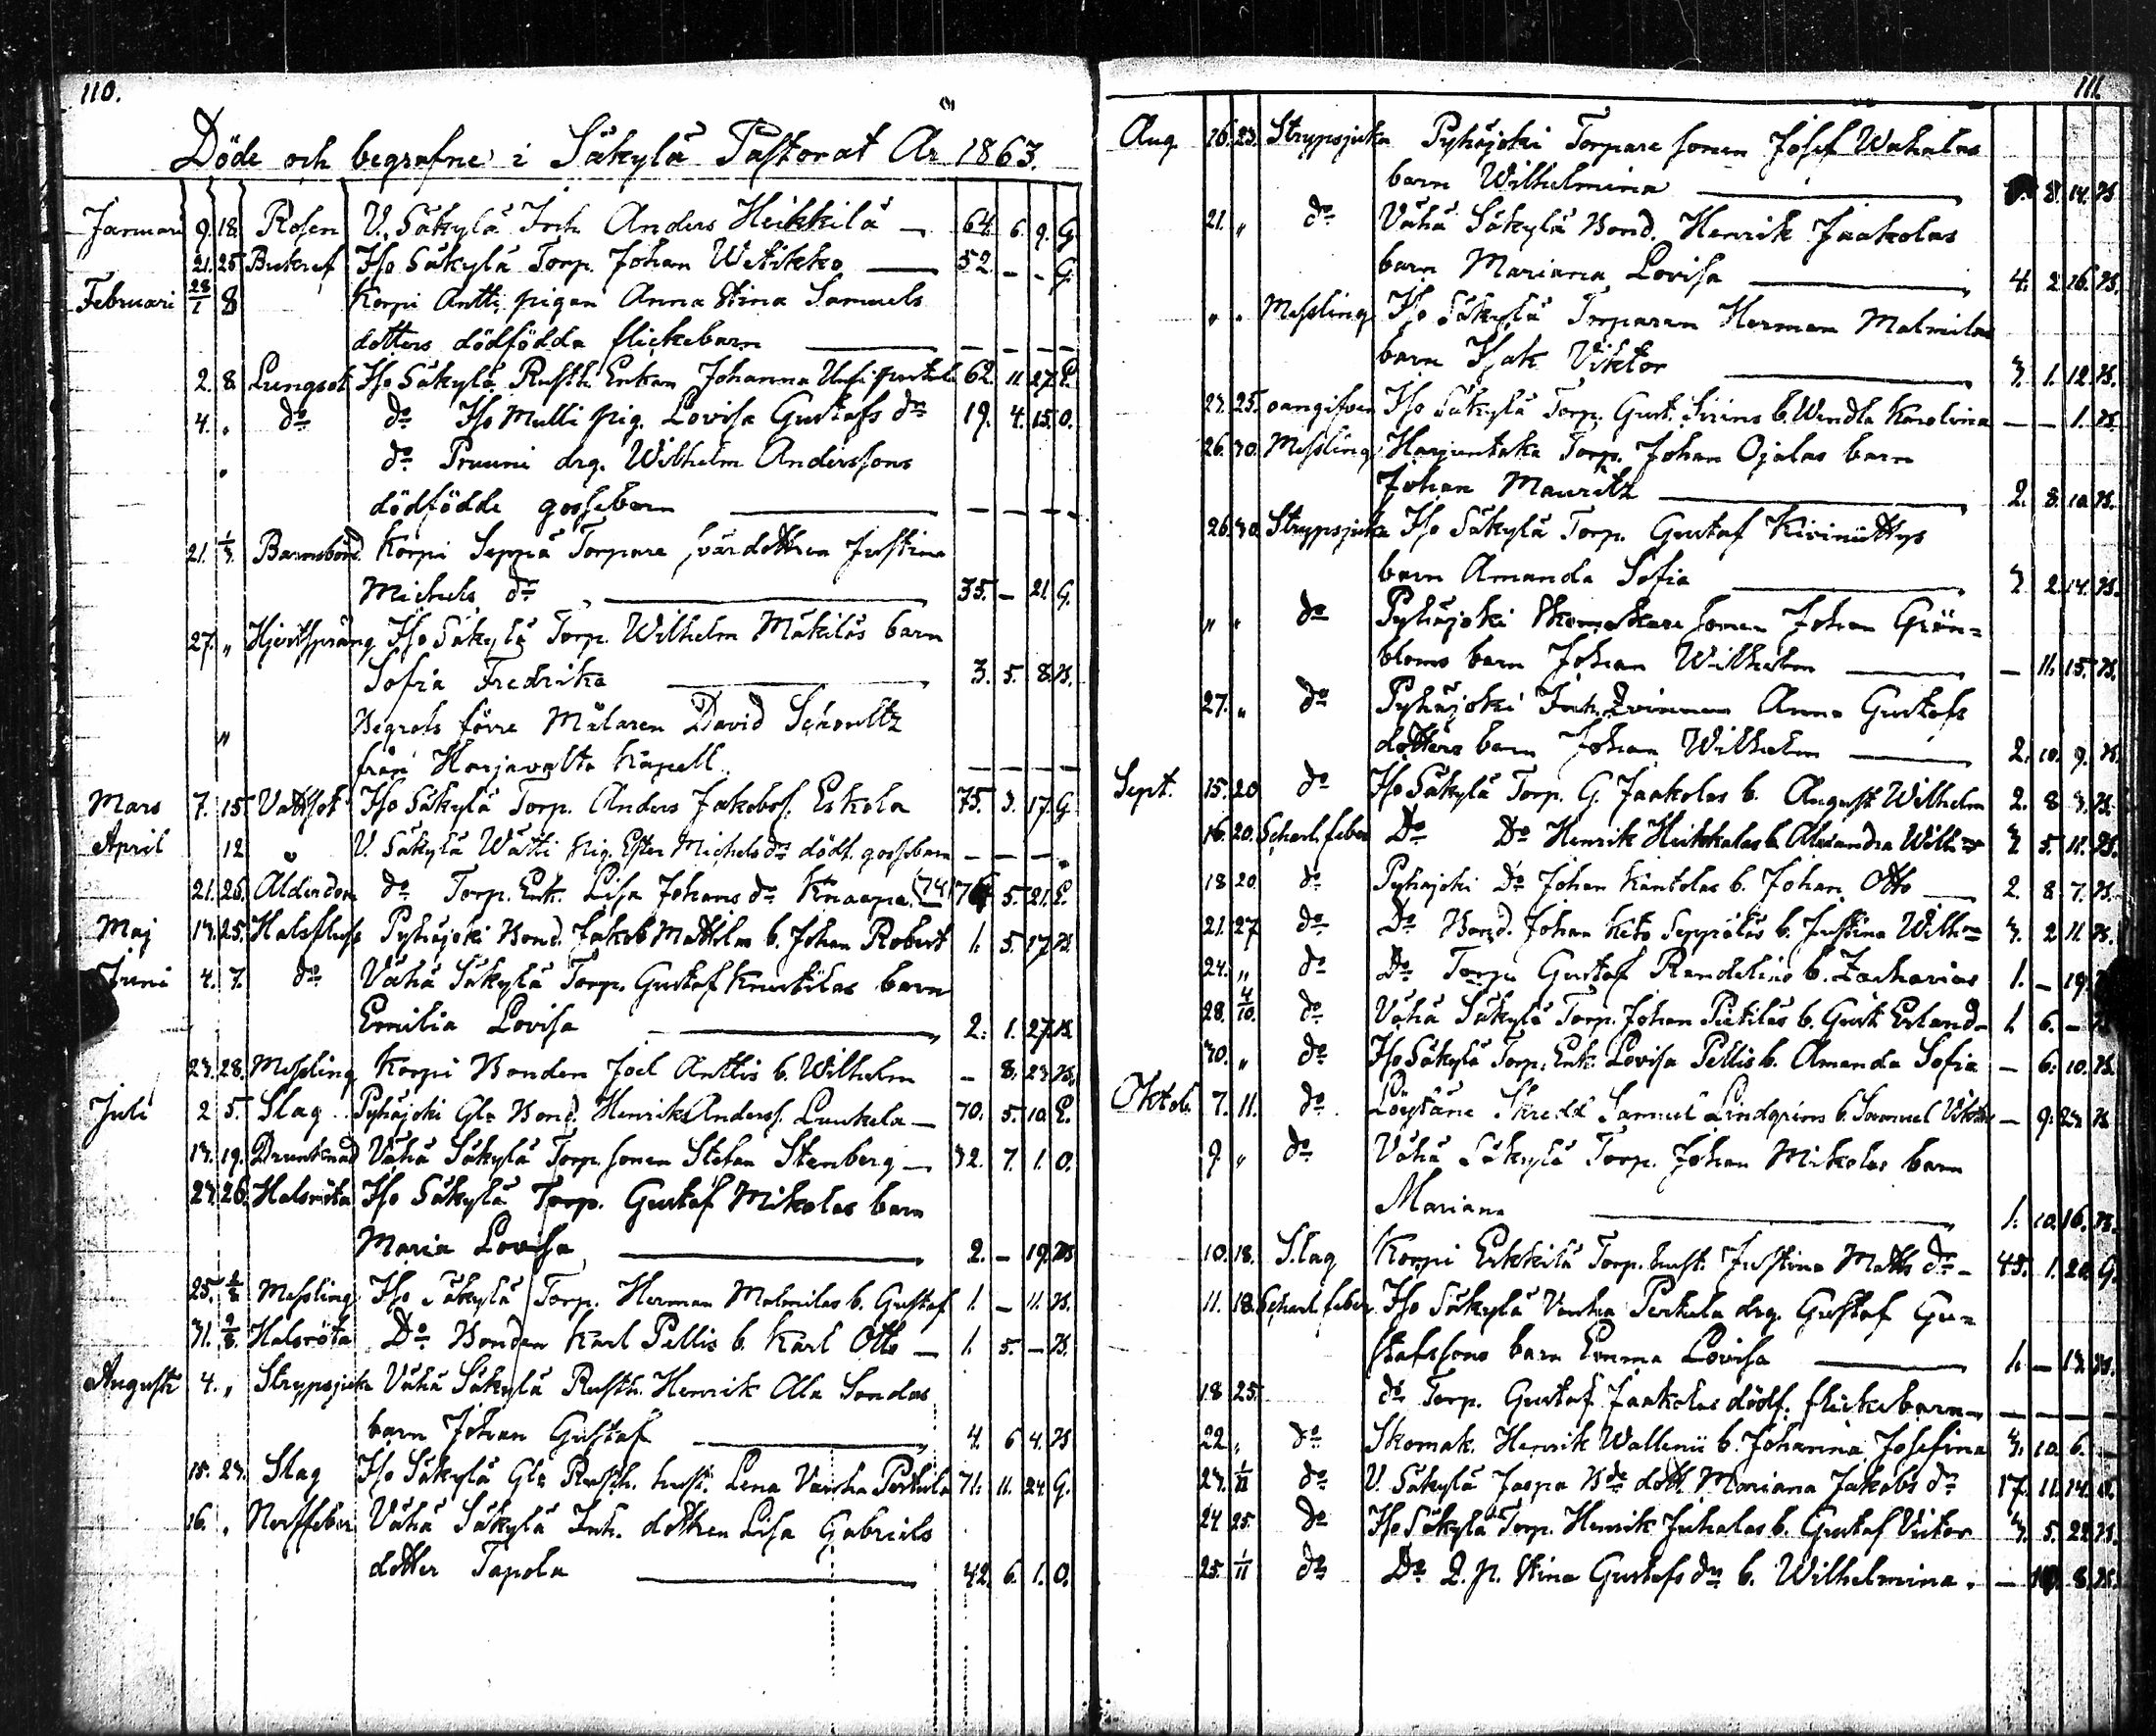 110.
Döde och begrafne i Säkylä Pastorat År 1863.
Januari 9. 18. Rosen V. Säkylä Inh. Anders Heikkilä — 64. 6. 9. G
21. 25 Bukref Iso Säkylä Torp. Johan Wetikko — 52. - - G.
Februari 28/1 8 Korpi Antti pigan Anna Stina Samuels
dotters dödfödda flickebarn — — — — —
2. 8. Lungsot Iso Säkylä Rusth. Enkan Johanna 62. 11. 27. E.
4. " do do Iso Mulli pig. Lovisa Gustafs dr 19. 4. 15. O.
" do Pruuni drg. Wilhelm Anderssons
dödfödde gossebarn — — — — —
21. 1/3. Barnsbörd Korpi Seppä Torpare svärdottren Justina
Michels dr — 35. — 21. G.
27. " Hjertsprång Iso Säkylä Torp. Wilhelm Mäkiläs barn
Sofia Fredrika — 3. 5. 8. B.
" Begrofs förre Målaren David Schoultz
från Harjavalta Kapell. — — — —
Mars 7. 15. Vattsot Iso Säkylä Torp. Anders Jakobss. Eskola 75. 3. 17. G
April 12 " V. Säkylä Wätti pig. Ester Michels dr dödf. gossebarn — — — -
21. 26. Ålderdom do Torp. Enk. Lisa Johans dr Knaapa (74) 76 5. 21. E.
Maj 13. 25. Halsfluss Pyhäjoki Bond. Jakob Mattilas b. Johan Robert 1. 5. 17 B.
Juni 4. 7. do Vähä Säkylä Torp. Gustaf Knuutilas barn
Emilia Lovisa — 2. 1. 27. B.
23. 28. Messling Korpi Bonden Joel Anttis b. Wilhelm - 8. 23. B.
Juli 2 5. Slag Pyhäjoki Gla Bond. Henrik Anderss. Luukela — 70. 5. 10. E.
13. 19. Drunknad Vähä Säkylä Torp. sonen Stefan Stenberg — 32. 7. 1. O.
23. 26. Halsröta Iso Säkylä Torp. Gustaf Mikolas barn
Maria Lovisa — 2. — 19. B
25. 2/8 Messling Iso Säkylä Torp. Herman Malmilas b. Gustaf 1. — 11. B.
31. 2/8. Halsröta Do Bonden Karl Pellis b. Karl Otto — 1. 5. — B.
Augusti 4. " Strypsjuka Vähä Säkylä Rusth. Henrik Ala Sondas
barn Johan Gustaf — 4. 6 4. B
15. 23. Slag Iso Säkylä Gla Rusth. hust. Lena Vanha Perhula 71. 11. 24. G.
16. " Nerffeber Vähä Säkylä Inh. dottren Lisa Gabriels
dotter Tapola — 42. 6. 1. O.
111.
Aug. 16. 23. Strypsjuka Pyhäjoki Torpare sonen Josef Wahalas
barn Wilhelmina — 8. 14. B
21. " do Vähä Säkylä Bond. Henrik Jaakolas
barn Mariana Lovisa — 4. 2 16. B.
" " Messling Iso Säkylä Torparen Herman Malmilas
barn Isak Viktor — 3. 1. 12. B.
23. 25. oangifven Iso Säkylä Torp. Gust. Siréns b. Wendla Karolina — — 1. B.
26. 30. Messling Harjuntaka Torp. Johan Ojalas barn
Johan Mauritz — 2. 8. 10. B.
26. 30. Strypsjuka Iso Säkylä Torp. Gustaf Kiviniittys
barn Amanda Sofia — 3 2. 14. B.
" " do Pyhäjoki Skomakare sonen Johan Grön=
bloms barn Johan Wilhelm — — 11. 15. B.
27. " do Pyhäjoki Inh. Qvinnan Anna Gustafs
dotters barn Johan Wilhelm — 2. 10. 9. B.
Sept. 15. 20 do Iso Säkylä Torp. G. Jaakolas b. August Wilhelm 2. 8 3. B.
16. 20. Scharl. feber Do Do Henrik Heikkalas b. Alexandra Wilh:na 3. 5. 11. B.
18 20. do Pyhäjoki Do Johan Kantolas b. Johan Otto — 2. 8 7. B.
21. 27 do Do Bond. Johan Keto Seppäläs b. Justina Wilh:na 3. 2 11. B.
24. " do Do Torp. Gustaf Randelins b. Zacharias 1. — 19.
28. 4/10. do Vähä Säkylä Torp. Johan Pietiläs b. Gust. Erland — 1. 6. —
30. " do Iso Säkylä Torp. Enk. Lovisa Pellis b. Amanda Sofia — 6. 10. B.
Oktob. 7. 11. do Löytäne Skredd. Samuel Lindqvins b. Samuel Viktor — 9. 23. B
9 " do Vähä Säkylä Torp. Johan Mikolas barn
Mariana — 1. 10. 16. B.
10. 18. Slag Korpi Erkkilä Torp. hust. Justina Matts dr — 45. 1. 20. G.
11. 18. Scharl. feber Iso Säkylä Vanha Perhula drg. Gustaf Gu=
stafssons barn Emma Lovisa — 1. — 13. B.
18 25. do Torp. Gustaf Jaakolas dödf. flickebarn — — — — —
22. " do Skomak. Henrik Wallenii b. Johanna Josefina 3. 10. 6. —
23. 1/11 do V. Säkylä Jaspa Bde dott. Mariana Jakobs dr 17. 11. 14. O.
24 25. do Iso Säkylä Torp. Henrik Juhalas b. Gustaf Victor 3. 5. 22. B.
25. 1/11 do Do Q. p. Stina Gustafs dr b. Wilhelmina. — 10. 8. B.